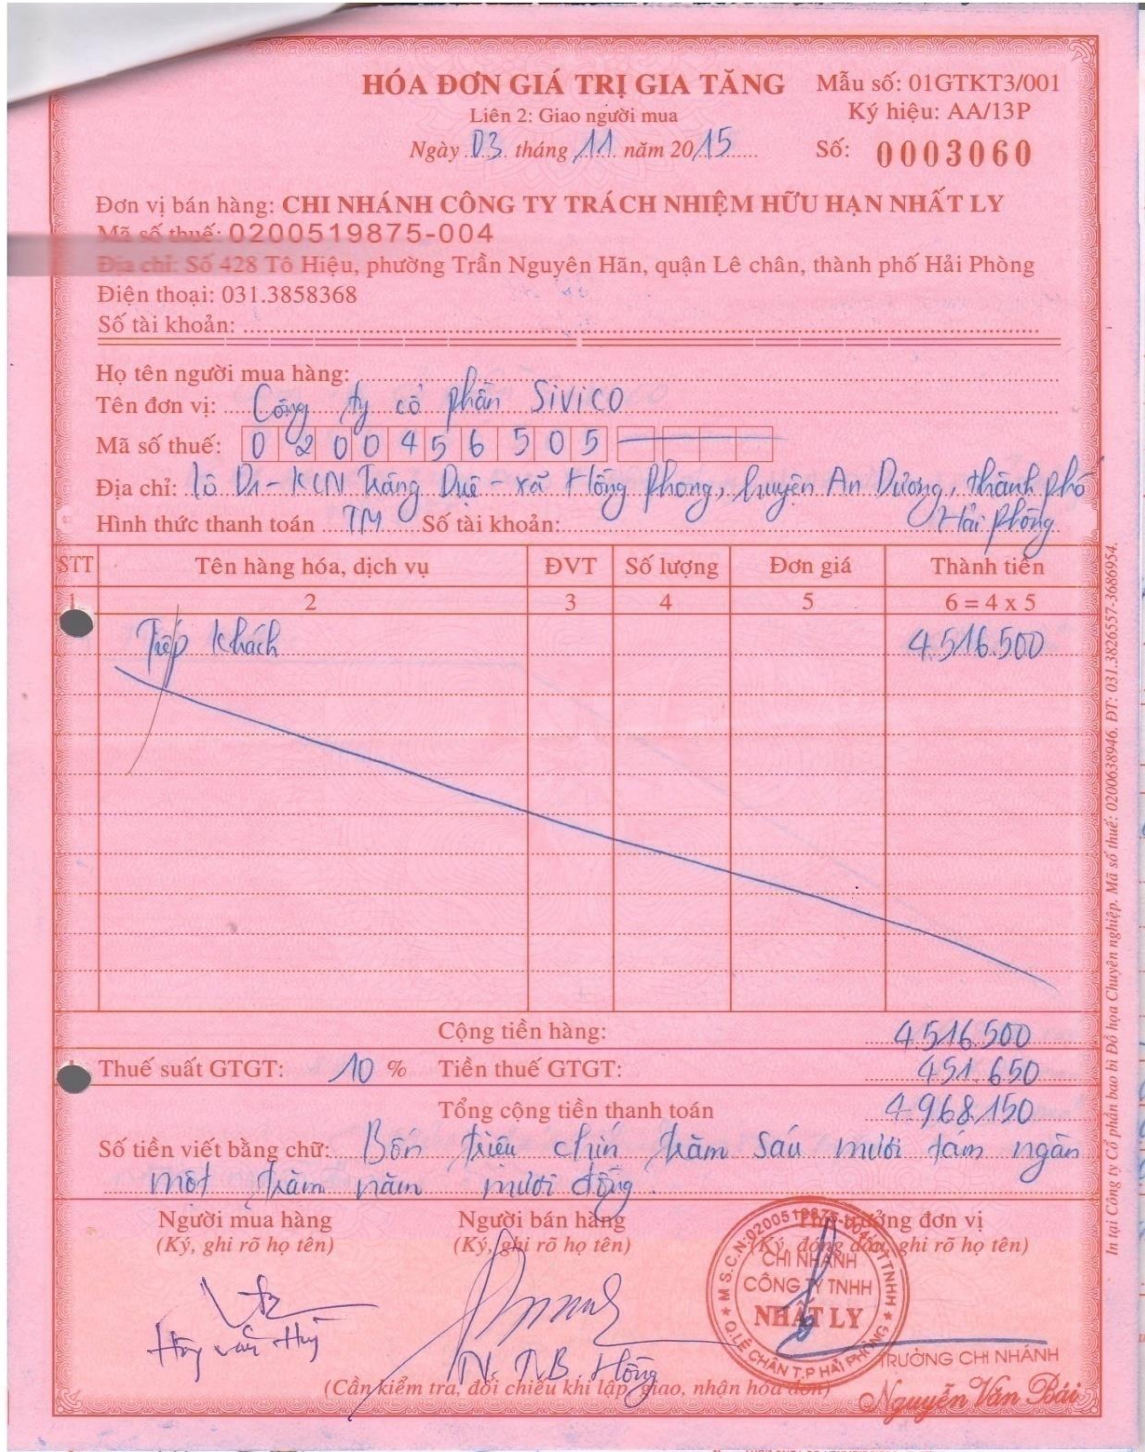 HÓA ĐƠN GIÁ TRỊ GIA TĂNG
Mẫu số: 01GTKT3/001
Liên 2: Giao người mua
Ký hiệu: AA/13P
Ngày 03 tháng 11 năm 2015
Số: 0003060
Đơn vị bán hàng: CHI NHÁNH CÔNG TY TRÁCH NHIỆM HỮU HẠN NHẤT LY
Mã số thuế: 0200519875-004
Địa chỉ: Số 428 Tô Hiệu, phường Trần Nguyên Hãn, quận Lê chân, thành phố Hải Phòng
Điện thoại: 031.3858368
Số tài khoản:
Họ tên người mua hàng:
Tên đơn vị: Công ty cổ phần SiViCO
Mã số thuế: 0 2 0 0 4 5 6 5 0 5
Địa chỉ: lô D1 - KCN Tràng Duệ - xã Hồng Phong, huyện An Dương, thành phố
Hải Phòng
Hình thức thanh toán TM Số tài khoản:
STT Tên hàng hóa, dịch vụ ĐVT Số lượng Đơn giá Thành tiền
1 2 3 4 5 6 = 4 x 5
Tiếp khách 4.516.500
Cộng tiền hàng: 4.516.500
Thuế suất GTGT: 10 % Tiền thuế GTGT: 451.650
Tổng cộng tiền thanh toán 4.968.150
Số tiền viết bằng chữ: Bốn triệu chín trăm sáu mươi tám ngàn
một trăm năm mươi đồng.
Người mua hàng Người bán hàng Thủ trưởng đơn vị
(Ký, ghi rõ họ tên) (Ký, ghi rõ họ tên) (Ký, đóng dấu, ghi rõ họ tên)
M.S.C.N:0200519875-004-C.T.TNHH
CHI NHÁNH
CÔNG TY TNHH
NHẤT LY
Q.LÊ CHÂN T.P HẢI PHÒNG
Hồng
TRƯỞNG CHI NHÁNH
Nguyễn Văn Bái
(Cần kiểm tra, đối chiếu khi lập, giao, nhận hóa đơn)
In tại Công ty Cổ phần bao bì Đồ họa Chuyên nghiệp. Mã số thuế: 0200638946. ĐT: 031.3826557-3686954.